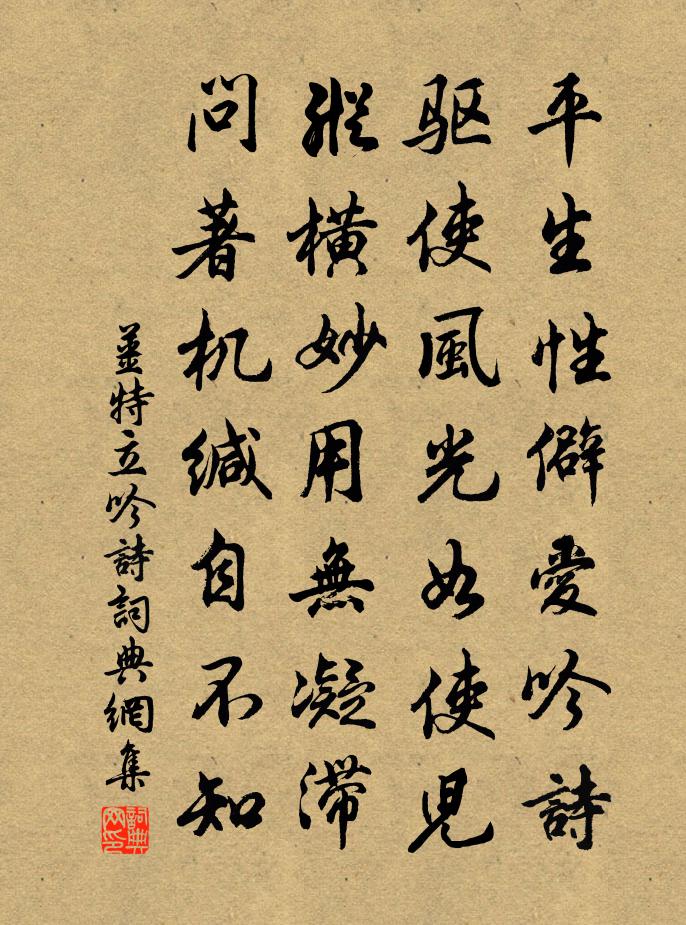 平生性僻愛吟詩
驱使風光如使児
縱橫妙用無凝滞
問著机緘自不知
薑特立吟詩詞典網集
詞典网印